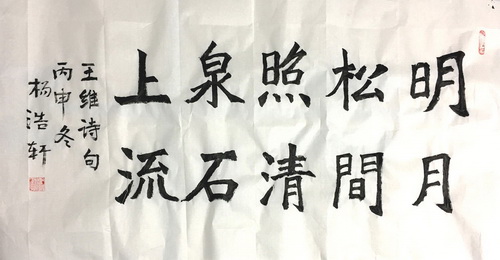 明月
松間
照清
泉石
上流
王维诗句
丙申冬
杨浩轩